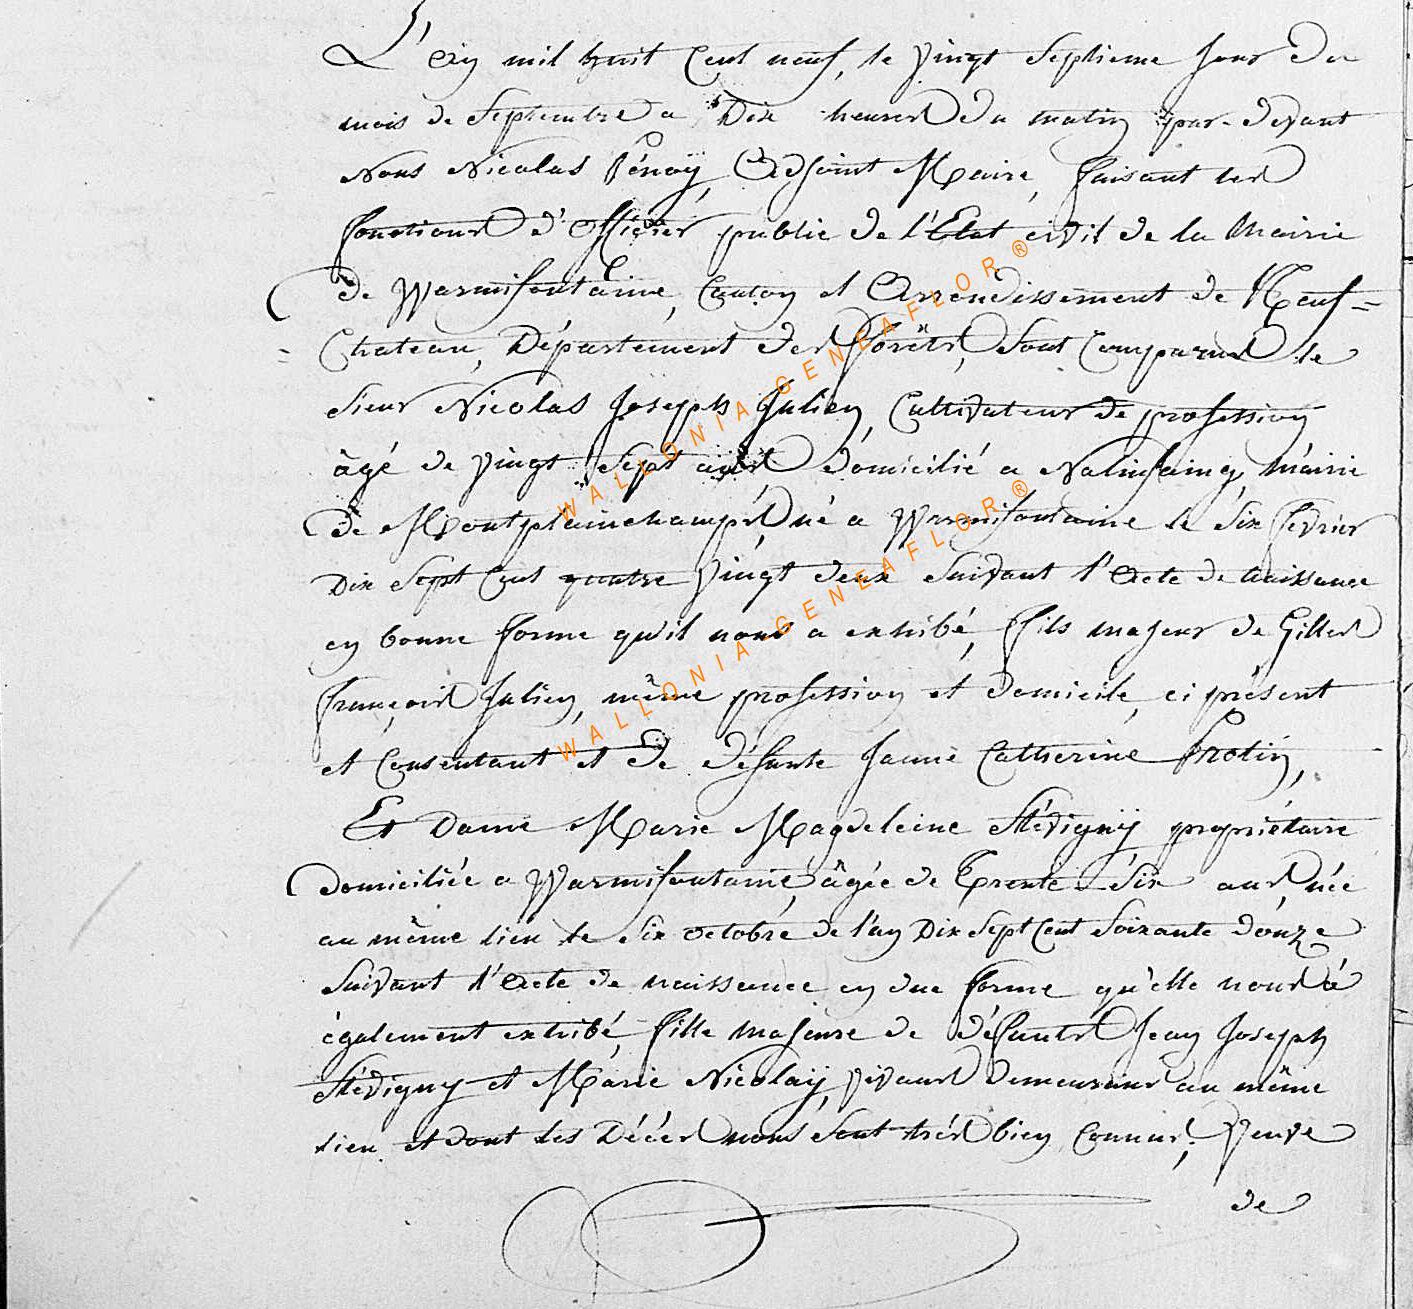 L'an mil huit Cent neuf, le vingt Septieme Jour du
mois de Septembre a Dix heures du matin par-devant
Nous Nicolas Pénoÿ, Adjoint Maire, faisant les
fonctions d'officier public de l'Etat civil de la Mairie
de Warmifontaine, Canton et Arrondissement de Neuf=
=Chateau, Département des forêts, Sont Comparus le
Sieur Nicolas Joseph Julien, Cultivateur de profession
âgé de vingt Sept ans domicilié a Nalinfaing, Mairie
de Montplainchamps, né a Warmifontaine le Six fevrier
Dix Sept Cent quatre vingt deux Suivant l'Acte de naissance
en bonne forme qu'il nous a exhibé, fils majeur de Gilles
françois Julien, même profession et domicile, ci présent
et Consentant et de défunte Janne Catherine Protin,
Et Dame Marie Magdeleine Stévignÿ propriétaire
Domiciliée a Warmifontaine, âgée de Trente Six ans, née
au même lieu le Six octobre de l'an Dix Sept Cent Soixante douze
Suivant l'Acte de naissance en due forme qu'elle nous a
également exhibé, fille majeure de défunts Jean Joseph
Stévigny et Marie Nicolaÿ, vivans demeurans au même
lieu et dont les Décès nous Sont très bien Connus, Veuve
de
WALLONIA-GENEAFLOR®
WALLONIA-GENEAFLOR®